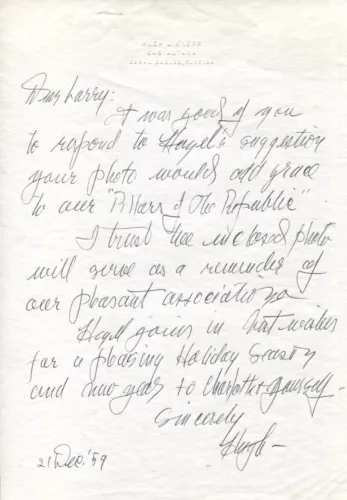 Dear Larry:
It was good of you
to respond to Hazel's suggestion
your photo would add grace
to our "Pillars of The Republic"
I trust the inclosed photo
will serve as a reminder of
our pleasant association
Hazel joins in best wishes
for a pleasing Holiday Season
and new year to Charlotte & yourself -
Sincerely
Hugh -
21 Dec. '59